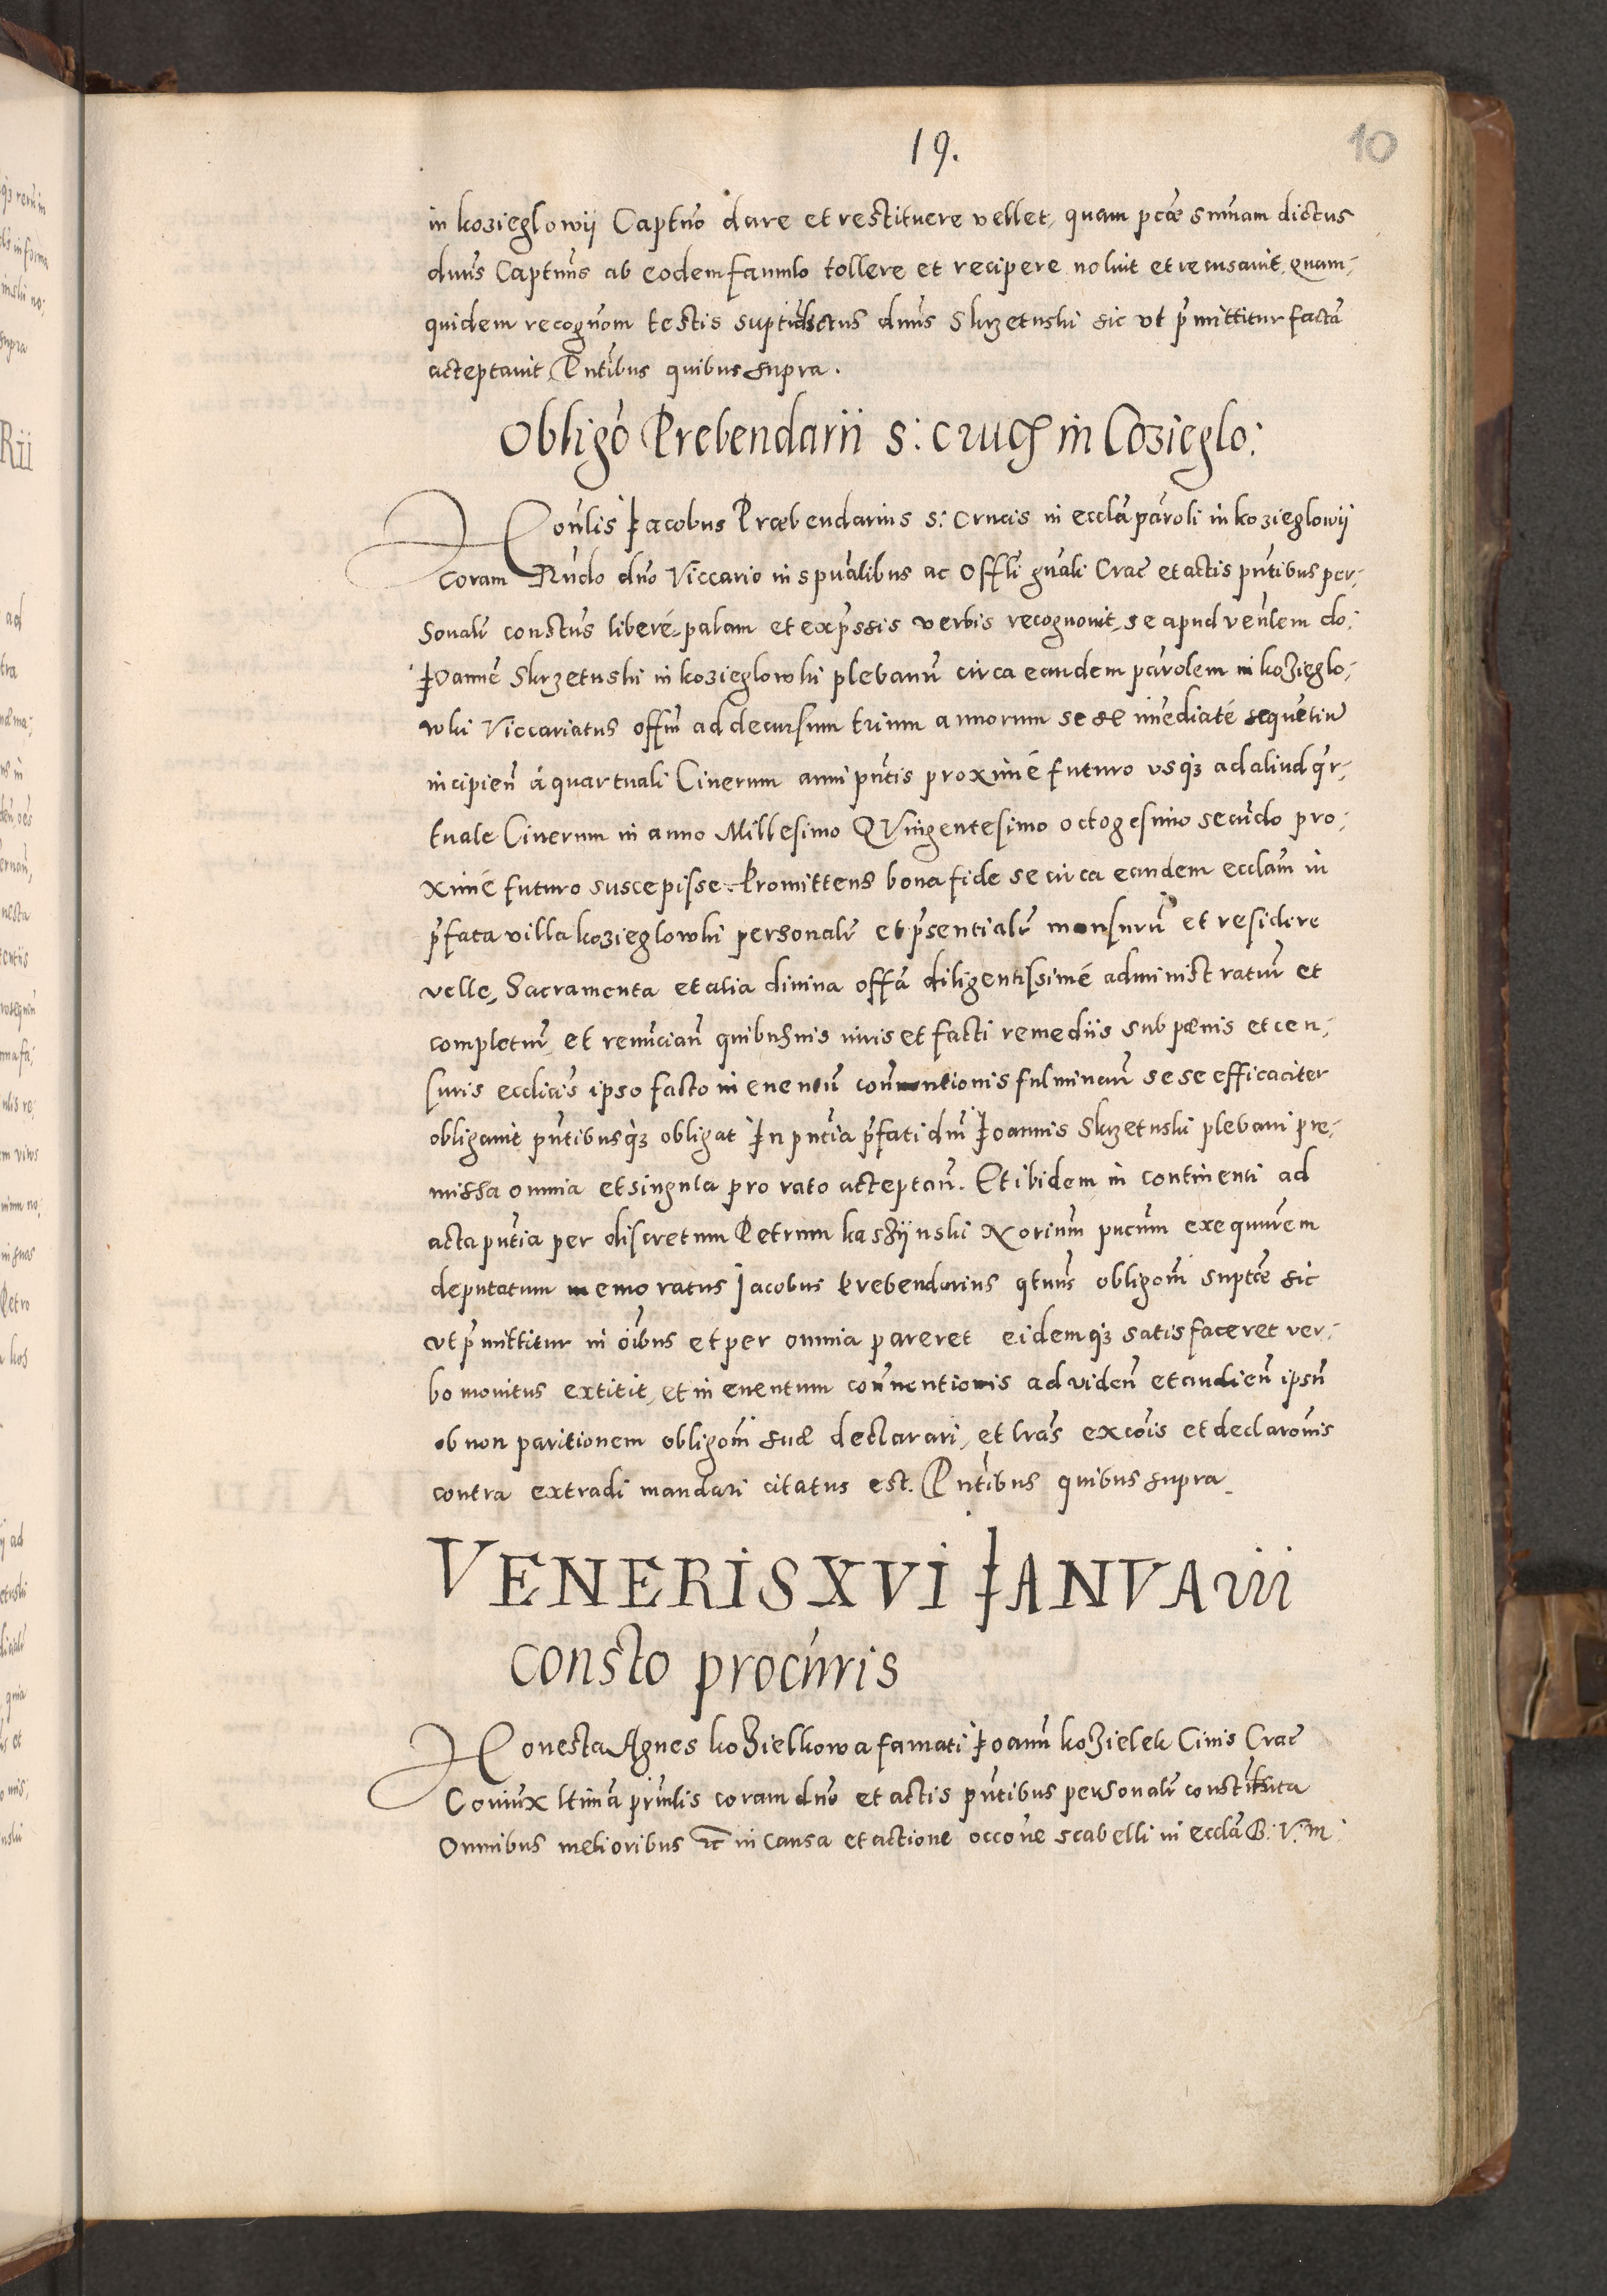 19.
10
in kozieglowÿ Captño dare et restituere vellet, quam pctæ summam dictus
dnus Captnus ab eodem famulo tollere et recipere noluit et recusauit. Quam-
quidem recognõm testis suptudictus dnus Skrzetuski sic vt p̃mittitur factã
acceptauit, Pñtibus quibus supra.
Obligõ Prebendarii S: Crucis in Cozieglo:
Honlis Jacobus Præbendarius S: Crucis in ecclã paroli in kozieglowÿ
coram Rñdo dño Viccario in spũalibus ac Offli gñali Crac̃ et actis pñtibus per-
sonalr̃ constus liberé, palam et exp̃ssis verbis recognouit, se apud venlem do:
Joannẽ Skrzetuski in kozieglowki plebanũ circa eandem parolem in kozieglo-
wki Viccariatus offm̃ ad decursum trium annorum sese imediaté sequẽtiu
incipien̄ á quartuali Cinerum anni pñtis proximé futuro vsq₃ ad aliud qr-
tuale Cinerum in anno Millesimo QVingentesimo octogesimo secũdo pro-
ximé futuro suscepisse. Promittens bona fide se circa eandem ecclam̃ in
p̃fata villa kozieglowki personalr̃ et p̃sentialr̃ mansurũ et residere
velle, Sacramenta et alia diuina offa diligentissimé administraturũ et
completurũ, et renũcian̄ quibusuis iuris et facti remediis sub pœnis et cen-
suris ecclicis ipso facto in euentũ conuentionis fulminan̄ sese efficaciter
obligauit pñtibusq₃ obligat In pñtia p̃fati dñi Joannis Skrzetuski plebani pre-
missa omnia et singula pro rato acceptan̄. Et ibidem in continenti ad
acta pñtia per discretum Petrum kaszÿnski Norium̃ pucum̃ exequurem
deputatum memoratus Jacobus Prebendarius qtnus obligom̃ suptæ sic
vt p̃mittitur in oĩbus et per omnia pareret eidemq₃ satisfaceret ver-
bo monitus extitit, et in euentum conuentionis ad viden̄ et audien̄ ipsũ
ob non paritionem obligom̃ suæ declarari, et lras excõis et declaronis
contra extradi mandari citatus est. Pñtibus quibus supra.
VENERIS XVI JANVArii
Consto procuris
Honesta Agnes koZielkowa famati Joann̄ koZielek Ciuis Crac̃
Coniux ltima prinlis coram dño et actis pñtibus personalr̃ constituta
Omnibus melioribus etc̃ in Causa et actione occõne scabelli in ecclã B: V: m: